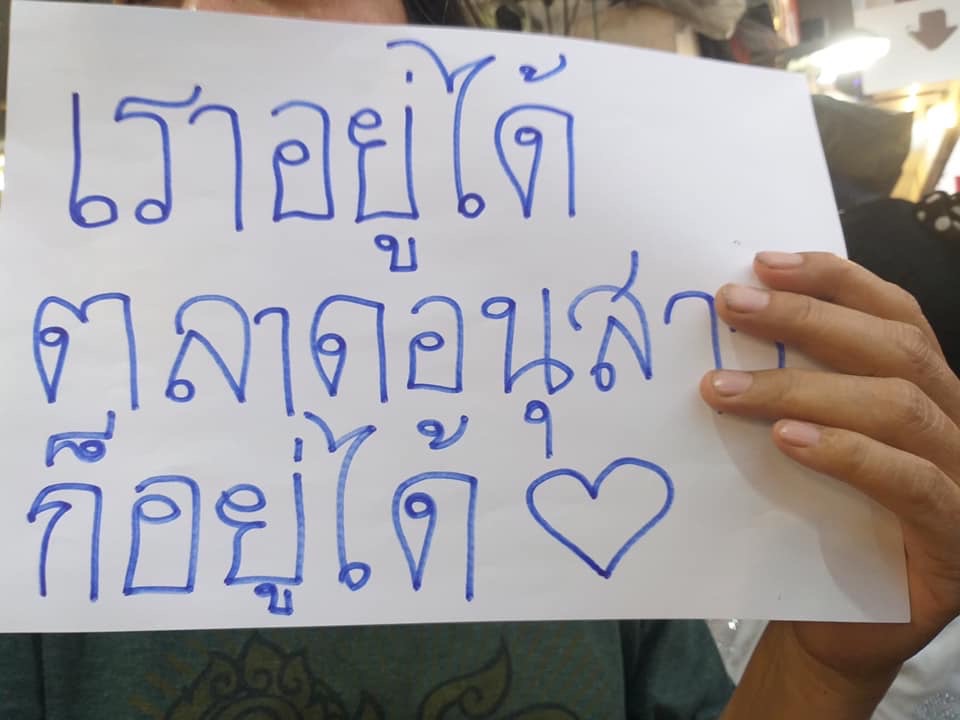 เราอยู่ได้
ตลาดอนุสา
ก็อยู่ได้ ♡